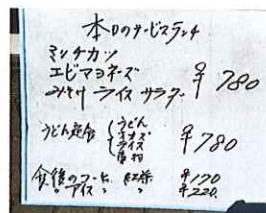 本日のサービスランチ
ミンチカツ
エビマヨネーズ
みそ汁 ライス サラダ ¥780
うどん定食 うどん ライス ¥780
食後のコーヒー 紅茶 ¥170
〃 アイス 〃 ¥220